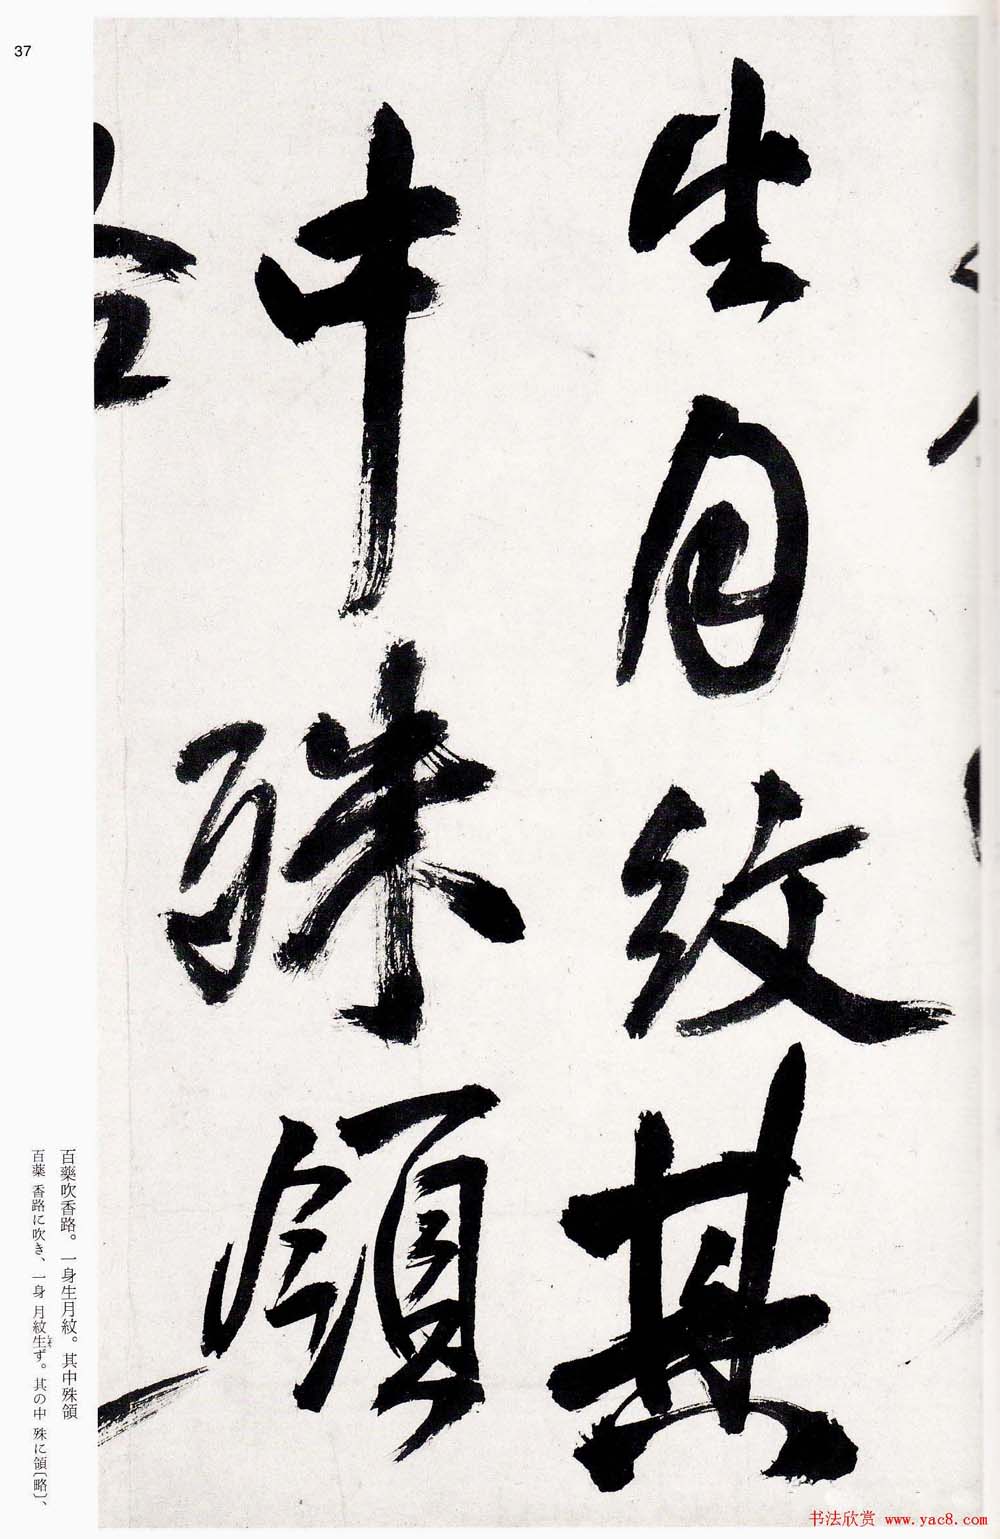 37
生月紋其
中殊領
百藥吹香路。一身生月紋。其中殊領
百藥 香路に吹き、一身 月紋生ず。其の中 殊に領〔略〕、
书法欣赏 www.yac8.com